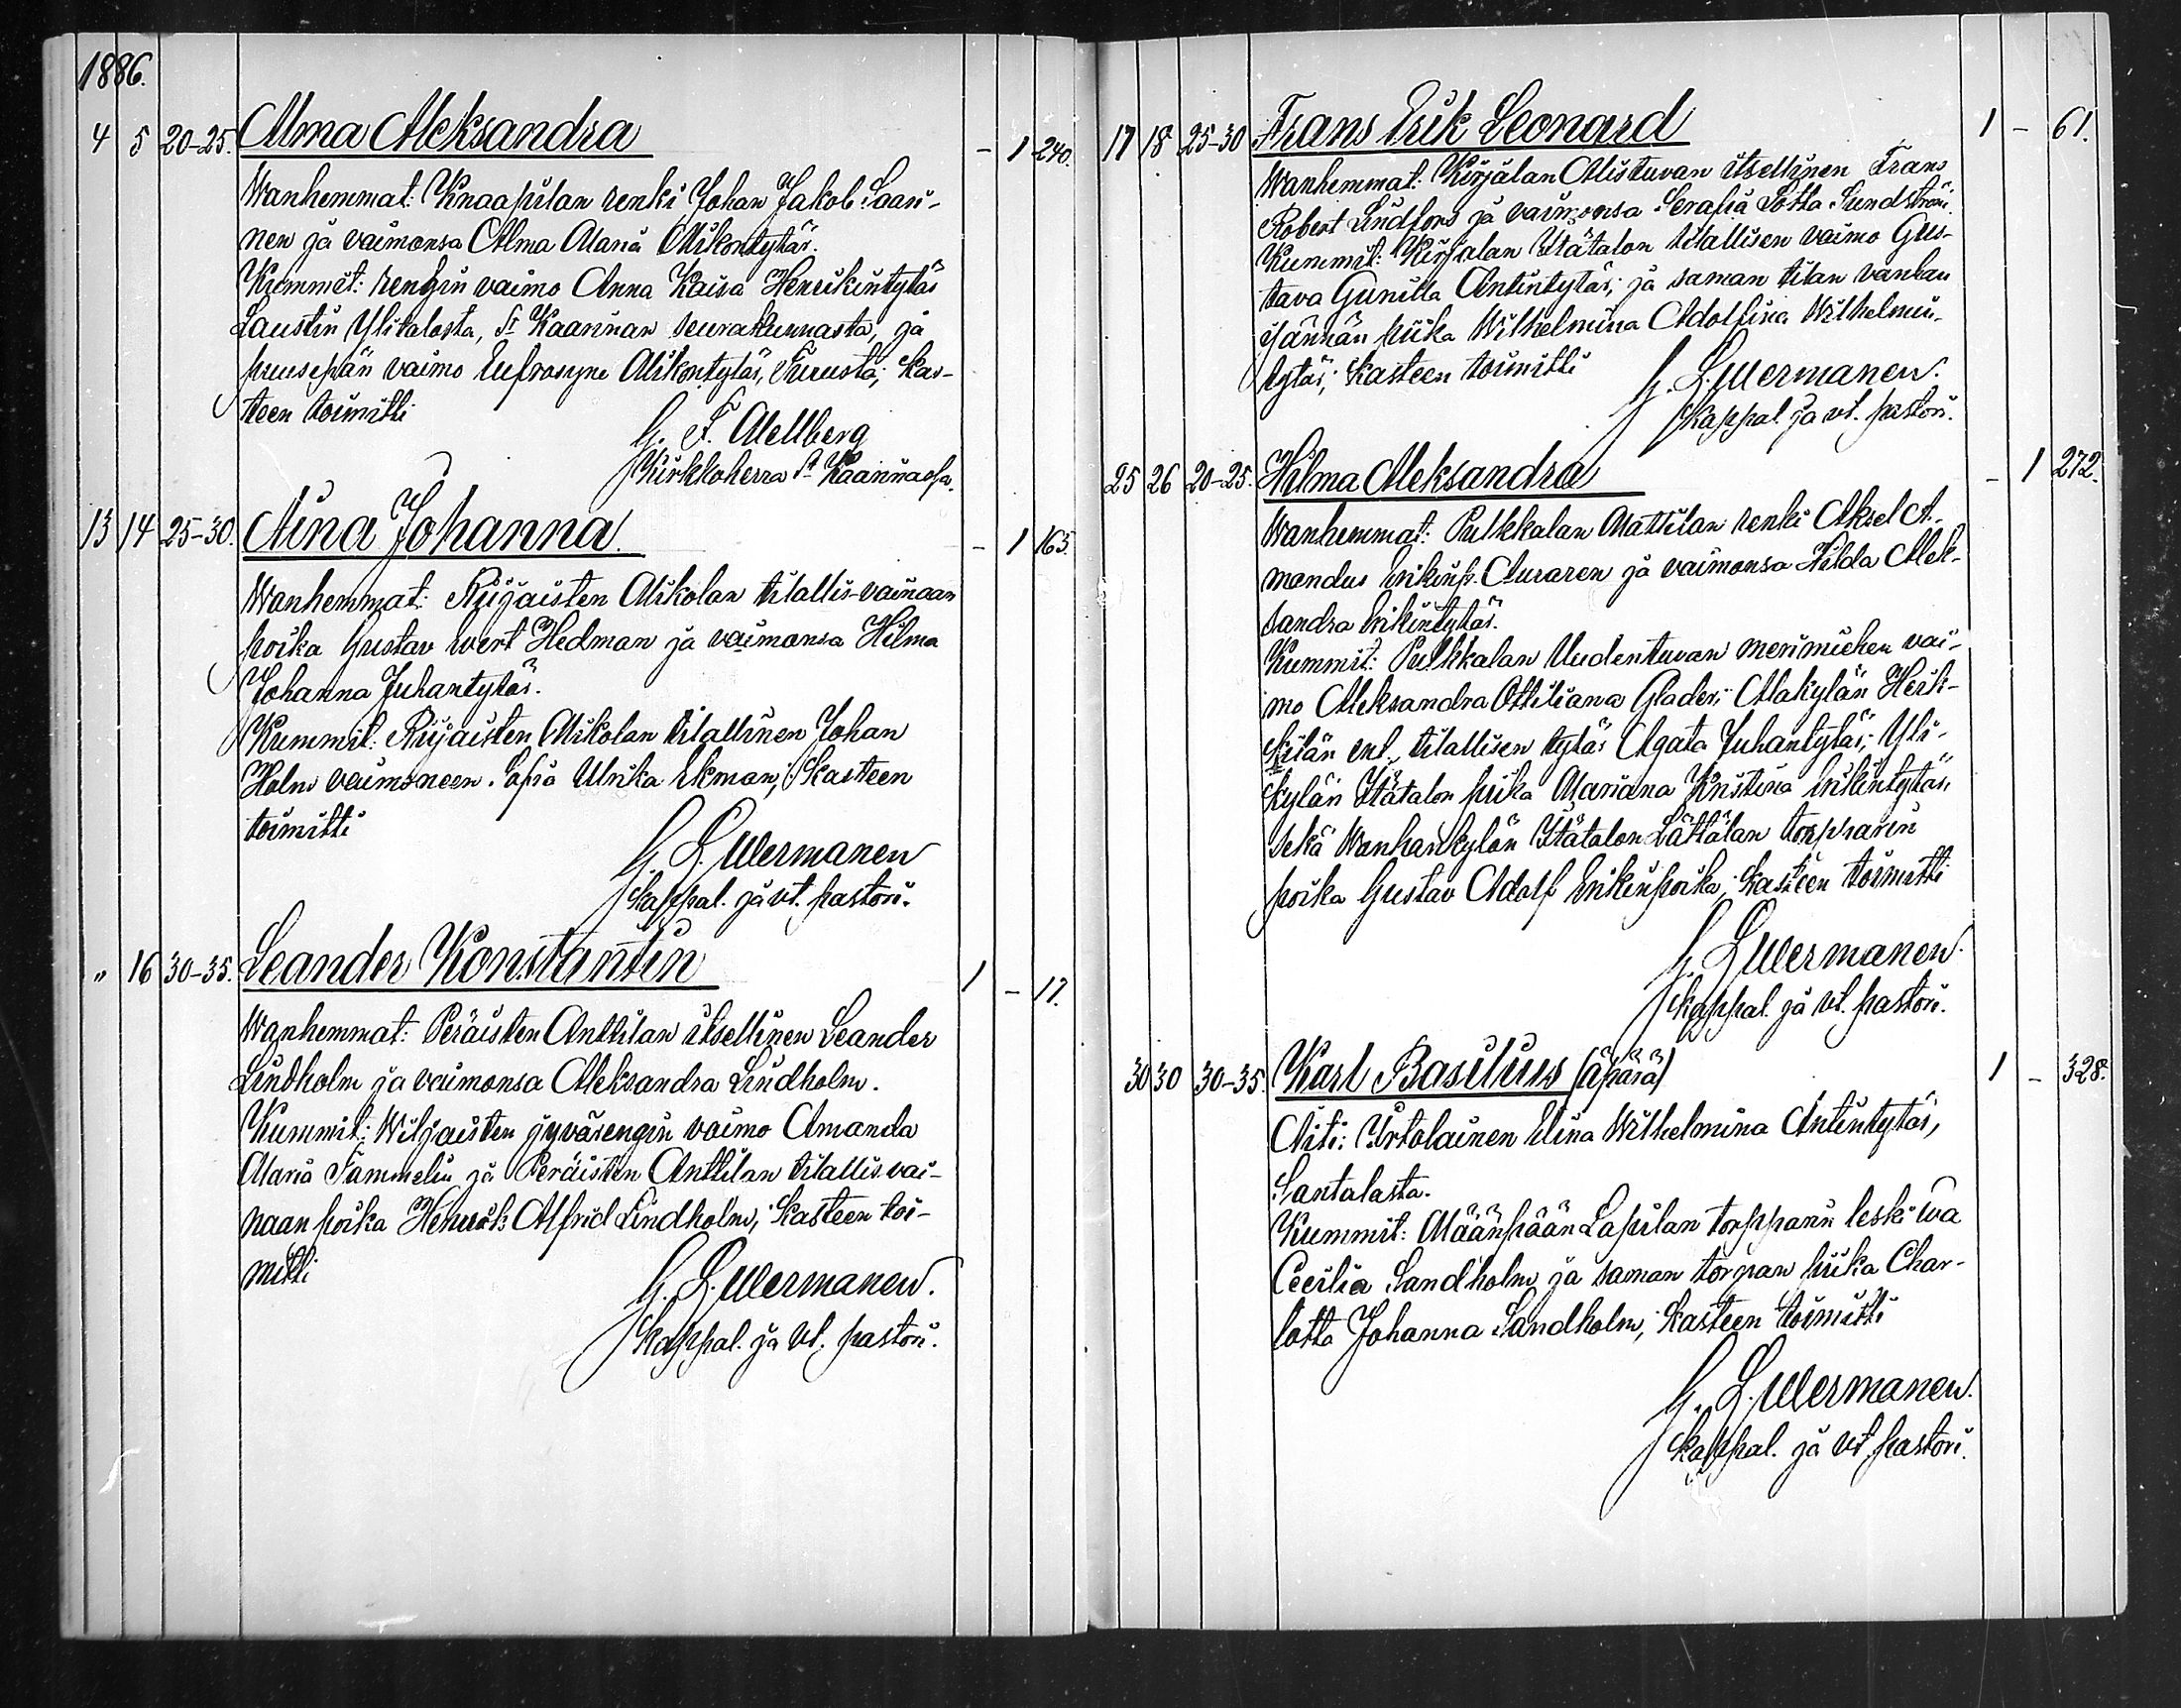 1886.
4 5 20-25. Alma Aleksandra - 1 240.
Wanhemmat: Knaapilan renki Johan Jakob Saari-
nen ja vaimonsa Alma Maria Mikontytär.
Kummit: rengin vaimo Anna Kaisa Henrikintytär
Laustin Ylitalosta, St Kaarinan seurakunnasta, ja
puusepän vaimo Eufrosyne Mikontytär, Turusta; kas-
teen toimitti
G. F. Mellberg
Kirkkoherra St Kaarinassa.
13 14 25-30. Aina Johanna - 1 163.
Wanhemmat: Riijaisten Mikolan tilallis-vainaan
poika Gustav Iwert Hedman ja vaimonsa Hilma
Johanna Juhantytär.
Kummit: Riijaisten Mikolan tilallinen Johan
Holm vaimoneen Sofia Ulrika Ekman; Kasteen
toimitti
G. L. Mermanen
Kappal. ja vt. pastori.
" 16 30-35. Leander Konstantin 1 - 17.
Wanhemmat: Peräisten Anttilan itsellinen Leander
Lindholm ja vaimonsa Aleksandra Lindholm.
Kummit: Wiljaisten jyvärengin vaimo Amanda
Maria Tammelin ja Peräisten Anttilan tilallis-vai-
naan poika Henrik Alfrid Lindholm; Kasteen toi-
mitti
G. L. Mermanen.
Kappal. ja vt. pastori.
17 18 25-30 Frans Erik Leonard 1 - 61.
Wanhemmat: Kirjalan Alistuvan itsellinen Frans
Robert Lindfors ja vaimonsa Serafia Lotta Sundström.
Kummit: Kirjalan Itätalon tilallisen vaimo Gus-
tava Gunilla Antintytär; ja saman tilan vanhan
isännän piika Wilhelmina Adolfina Wilhelmin-
tytär; Kasteen toimitti
G. L. Mermanen.
Kappal. ja vt. pastori.
25 26 20-25. Hilma Aleksandra - 1 272.
Wanhemmat: Pulkkalan Mattilan renki Aksel A-
mandus Erikinp. Auraren ja vaimonsa Hilda Alek-
sandra Erikintytär.
Kummit: Pulkkalan Uudentuvan merimiehen vai-
mo Aleksandra Ottiliana Glader; Makylän Heik-
kilän ent. tilallisen tytär Agata Juhantytär; Yli-
kylän Itätalon piika Mariana Kristina Erikintytär,
sekä Wanhankylän Itätalon Lättälän torpparin
poika Gustav Adolf Erikinpoika; Kasteen toimitti
G. L. Mermanen.
Kappal. ja vt. pastori.
30 30 30-35. Karl Basilius (äpärä) 1 - 328.
Äiti: Irtolainen Elina Wilhelmina Antintytär,
Santalasta.
Kummit: Määnpään Lapilan torpparin leski Eva
Cecilia Sandholm ja saman torpan piika Char-
lotta Johanna Sandholm; Kasteen toimitti
G. L. Mermanen.
Kappal. ja vt. pastori.